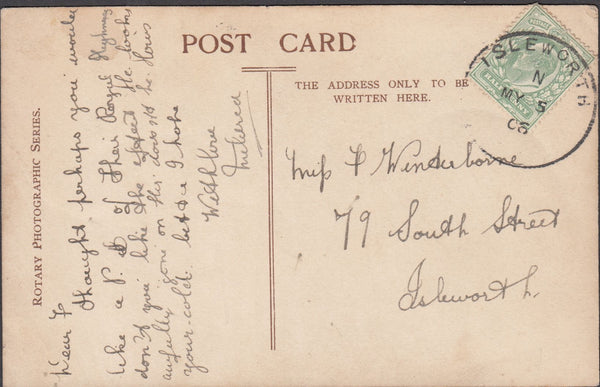 POST CARD
THE ADDRESS ONLY TO BE
WRITTEN HERE.
ROTARY PHOTOGRAPHIC SERIES.
ISLEWORTH
N
MY 5
06
Miss F Winterborne
79 South Street
Isleworth.
Dear F
thought perhaps you would
like a P. C of Their Royal Highness
don't you like the effect He looks
awfully gone on this does not he. How's
your cold. better I hope
With love